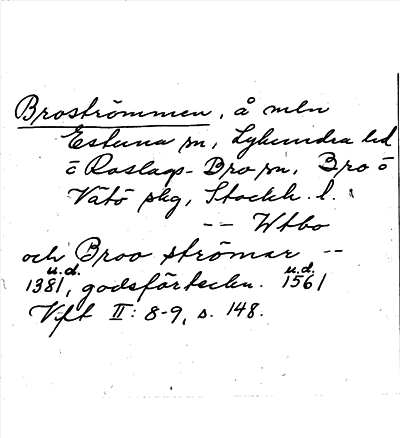 Broströmmen, å mln
Estuna sn, Lyhundra hd
o Roslags-Bro sn, Bro o
Vätö skg, Stockh. l.
-- Wtbo
och Broo strömar --
u.d. u.d.
1381, godsförteckn. 1561
Vft II: 8-9, s. 148.